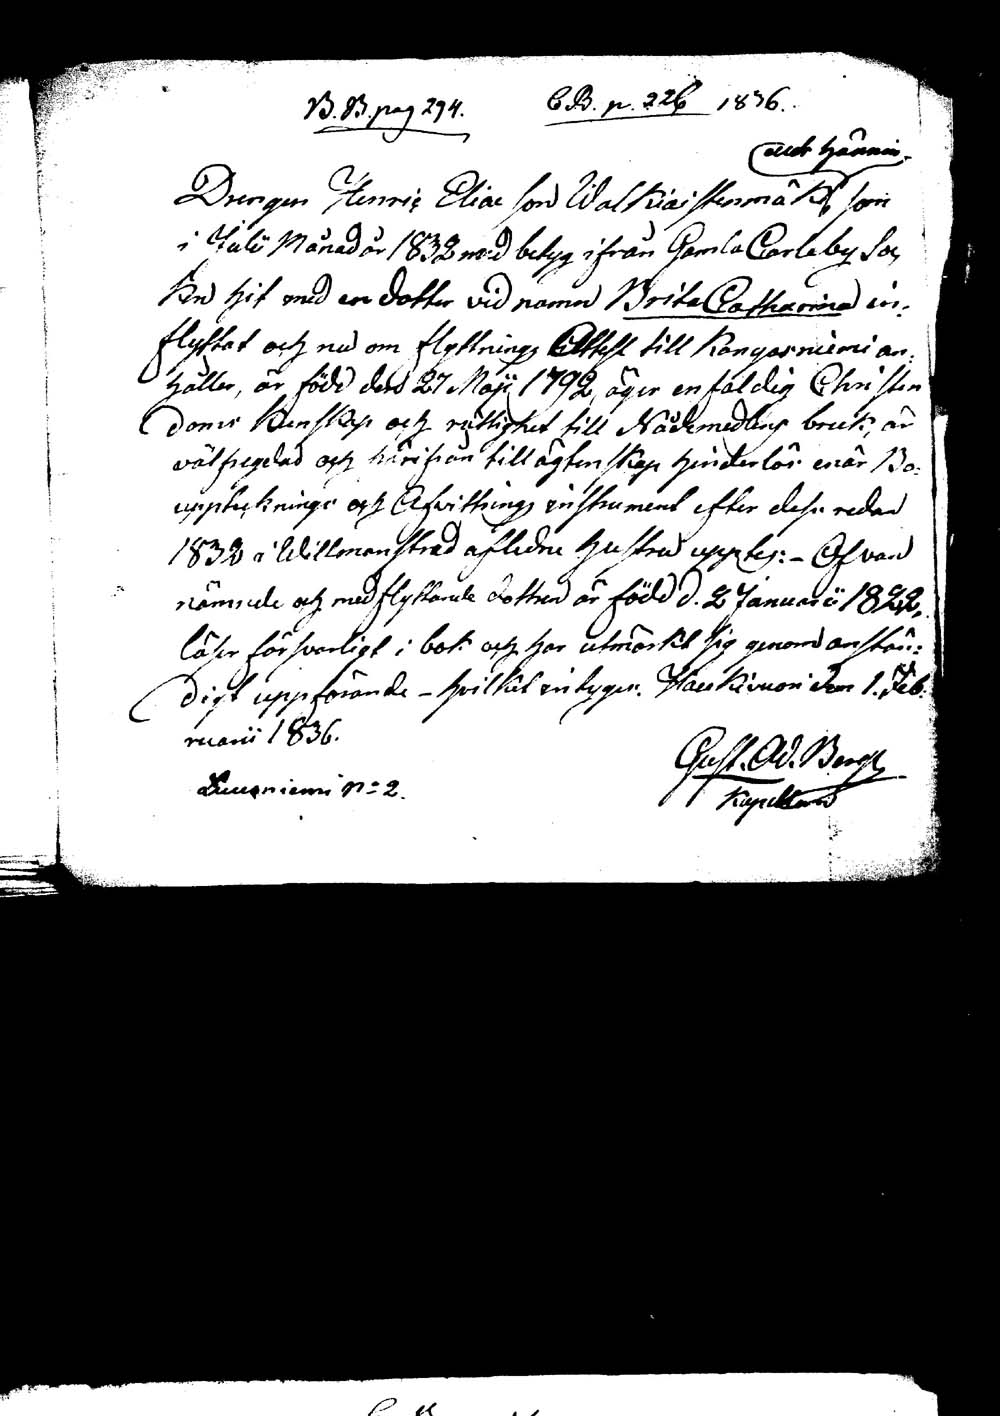 B.B. pag 294. C.B. p. 226 1836.
Hännin.
Drengen Henric Eliae son Walkiaistenmäki, som
i Julii Månad år 1832 med betyg ifrån Gamla Carleby Soc,
ken hit med en dotter vid namn Brita Catharina in-
flyttat och nu om flyttnings Attest till Kangasniemi an-
håller, är född den 27 Maji 1792, äger enfaldig Christen
doms kunskap och rättighet till Nådemedlens bruk, är
välfregdad och härifrån till ägtenskap hinderlös enär Bo-
uppteknings och Afvittrings instrument efter dess redan
1832 i Willmanstrad aflidne hustru upptes: - Ofvan
nämnde och medflyttande dottren är född d. 2 Januarii 1822,
läser försvarligt i bok och har utmärkt sig genom anstän-
digt uppförande - hvilket intygar. Haukivuori den 1. Feb-
ruarii 1836.
Gust. Ad. Bergh
Kapellan
N:o 2.